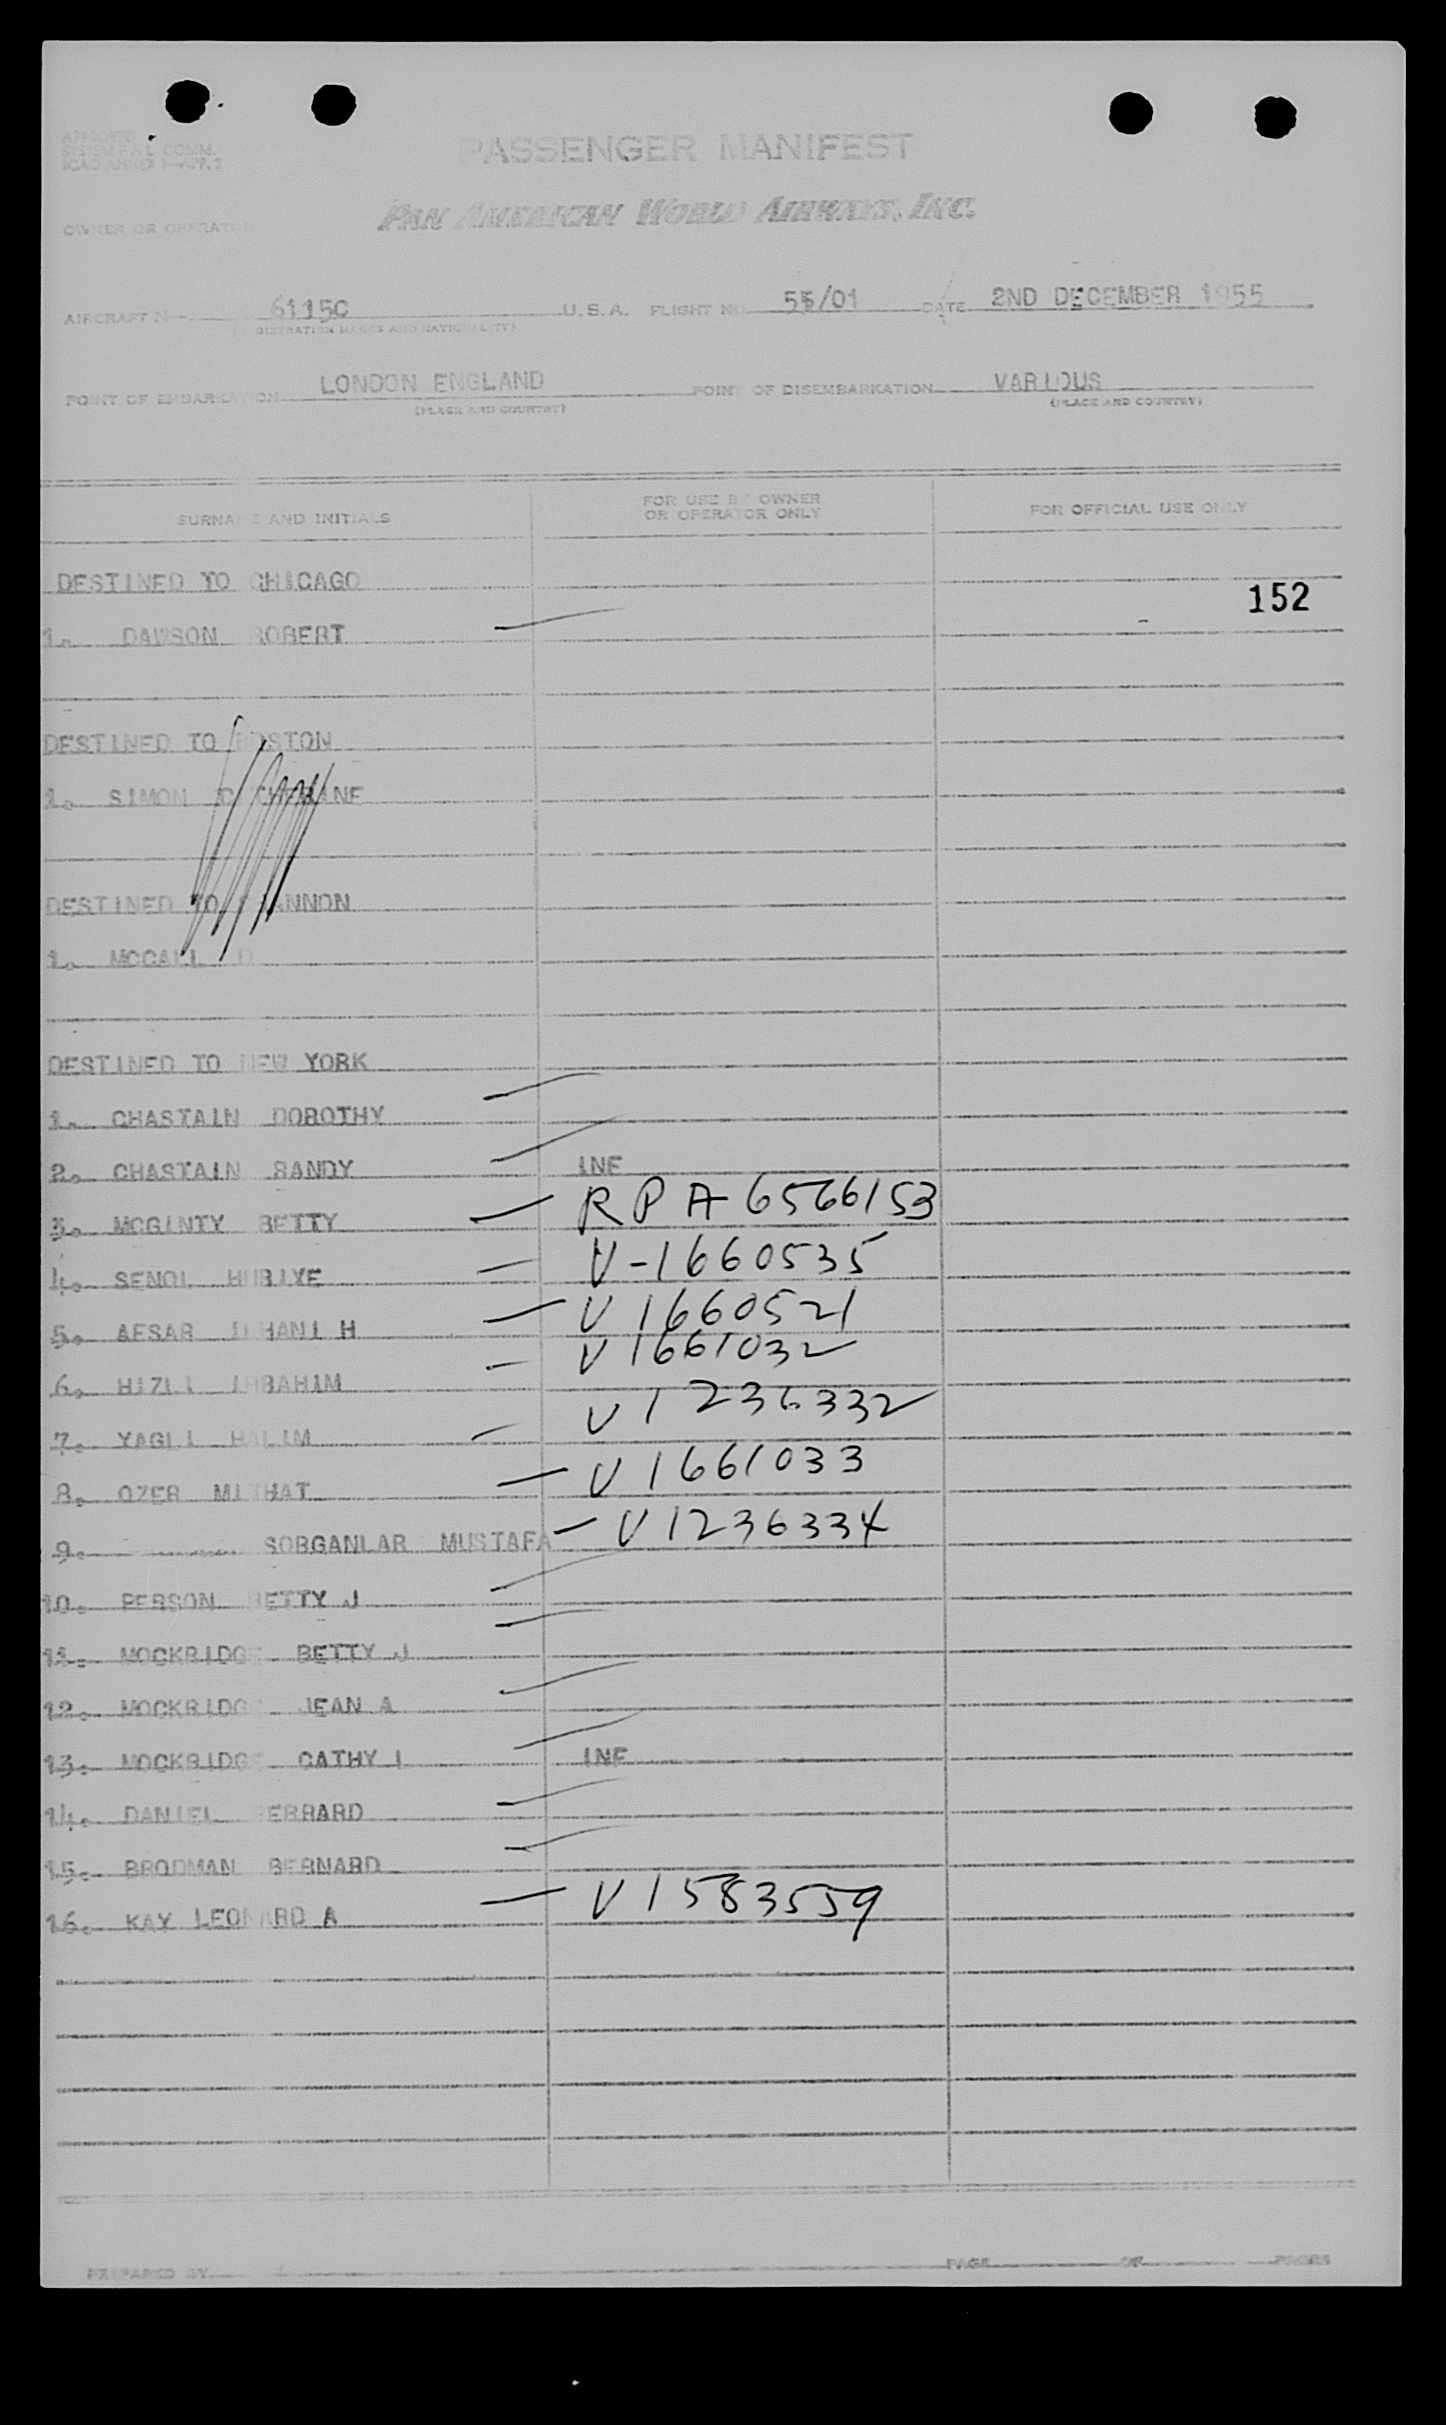 APPROVED
SYSTEM F.A.L. COMM.
ICAO ANNEX 9—APP. 2
PASSENGER MANIFEST
OWNER OR OPERATOR
PAN AMERICAN WORLD AIRWAYS, INC.
AIRCRAFT N- 6115C U.S.A. FLIGHT NO. 55/01 DATE 2ND DECEMBER 1955
(REGISTRATION MARKS AND NATIONALITY)
POINT OF EMBARKATION LONDON ENGLAND POINT OF DISEMBARKATION VARIOUS
(PLACE AND COUNTRY) (PLACE AND COUNTRY)
SURNAME AND INITIALS FOR USE BY OWNER OR OPERATOR ONLY FOR OFFICIAL USE ONLY
DESTINED TO CHICAGO
152
1. DAWSON ROBERT
DESTINED TO BOSTON
1. SIMON CATHERINE
DESTINED TO SHANNON
1. MCCALL D
DESTINED TO NEW YORK
1. CHASTAIN DOROTHY
2. CHASTAIN RANDY INF
3. MCGINTY BETTY R P A 6566153
4. SENOL HURIYE V-1660535
5. AFSAR ILHANI H V 1660521
6. HIZLI IBRAHIM V 1661032
7. YAGLI HALIM V 1236332
8. OZER MITHAT V 1661033
9. SORGANLAR MUSTAFA V 1236334
10. PERSON BETTY J
11. MOCKRIDGE BETTY J
12. MOCKRIDGE JEAN A
13. MOCKRIDGE CATHY L INF
14. DANIEL GERRARD
15. BRODMAN BERNARD
16. KAY LEONARD A V 1583559
PREPARED BY PAGE OF PAGES